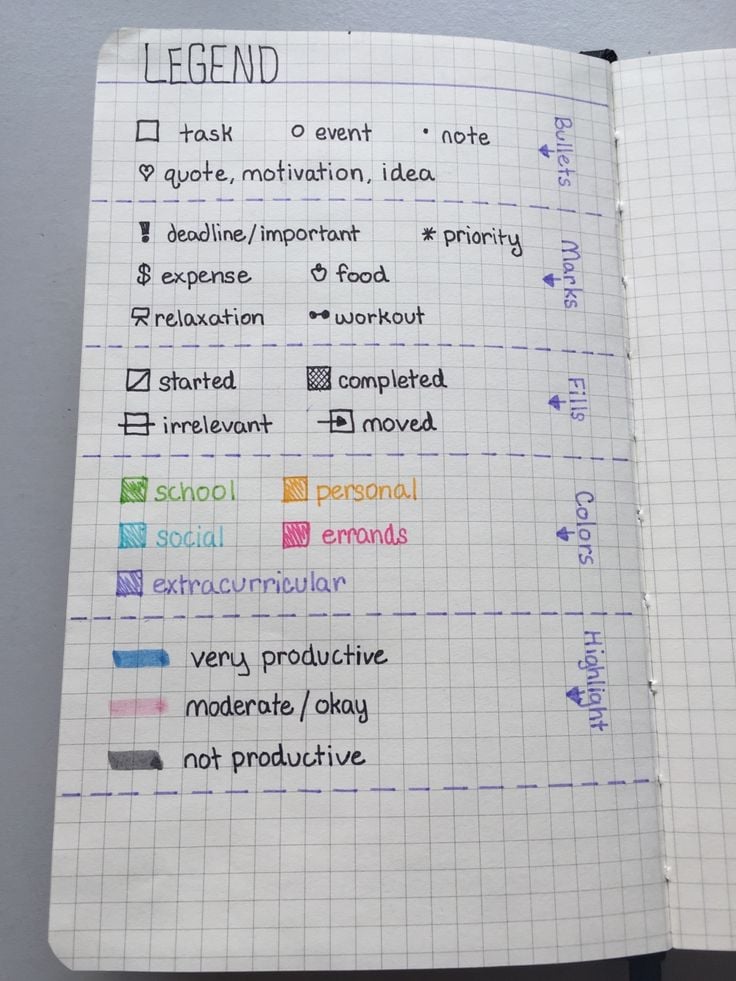 LEGEND
task event note
quote, motivation, idea
Bullets
! deadline/important * priority
$ expense food
relaxation workout
Marks
started completed
irrelevant moved
Fills
school personal
social errands
extracurricular
Colors
very productive
moderate/okay
not productive
Highlight